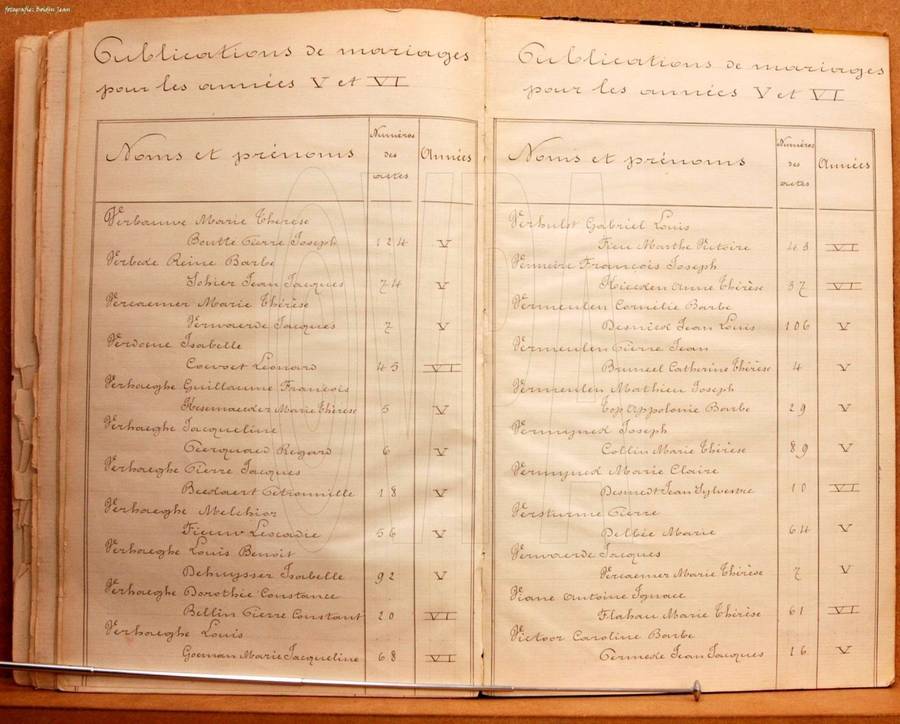 fotografie: Boidin Jean
Publications de mariages
pour les années V et VI
Noms et prénoms
Numéros
des
actes
Années
Verbauwe Marie Thérèse
Boutte Pierre Joseph 124 V
Verbeke Reine Barbe
Sohier Jean Jacques 74 V
Vercaemer Marie Thérèse
Verwaerde Jacques 7 V
Isabelle
Léonard 45 VI
Verhaeghe Guillaume François
Marie Thérèse 5 V
Verhaeghe Jacqueline
6 V
Verhaeghe Pierre Jacques
Beedaert Pétronnille 18 V
Verhaeghe Melchior
Fieuw Léocadie 56 V
Verhaeghe Louis Benoit
Dehuysser Isabelle 92 V
Verhaeghe Dorothée Constance
Bellin Pierre Constant 20 VI
Verhaeghe Louis
Goeman Marie Jacqueline 68 VI
Publications de mariages
pour les années V et VI
Noms et prénoms
Numéros
des
actes
Années
Verhulst Gabriel Louis
Marthe Victoire 43 VI
François Joseph
Anne Thérèse 37 VI
Vermeulen Cornélie Barbe
Jean Louis 106 V
Vermeulen Pierre Jean
Bruneel Catherine Thérèse 4 V
Vermeulen Mathieu Joseph
Top Appolonie Barbe 29 V
Joseph
Collin Marie Thérèse 89 V
Marie Claire
Desmedt Jean Sylvestre 10 VI
Pierre
Delbée Marie 64 V
Verwaerde Jacques
Vercaemer Marie Thérèse 7 V
Viane Antoine Ignace
Flahau Marie Thérèse 61 VI
Victoor Caroline Barbe
Permeke Jean Jacques 16 V